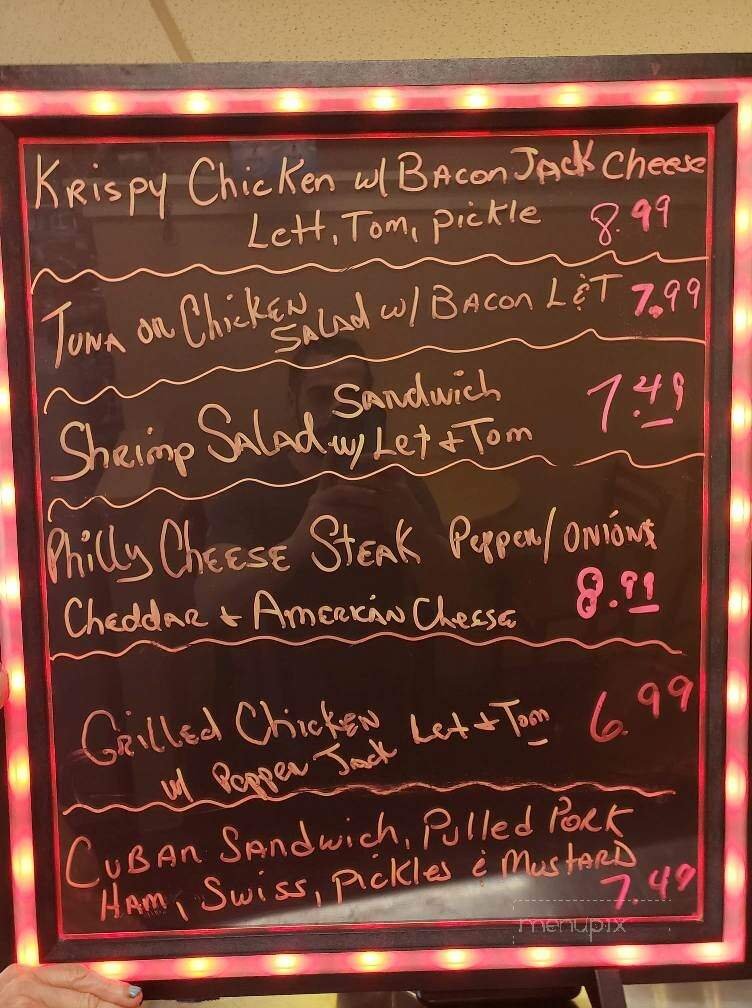 Krispy Chicken w/ Bacon Jack Cheese
Lett, Tom, pickle 8.99
Tuna or Chicken Salad w/ Bacon L&T 7.99
Sandwich
Shrimp Salad w/ Let + Tom 7.49
Philly Cheese Steak Pepper/Onions
Cheddar + American Cheese 8.99
Grilled Chicken Let + Tom 6.99
w/ Pepper Jack
Cuban Sandwich, Pulled Pork
Ham, Swiss, Pickles & Mustard
7.49
menupix